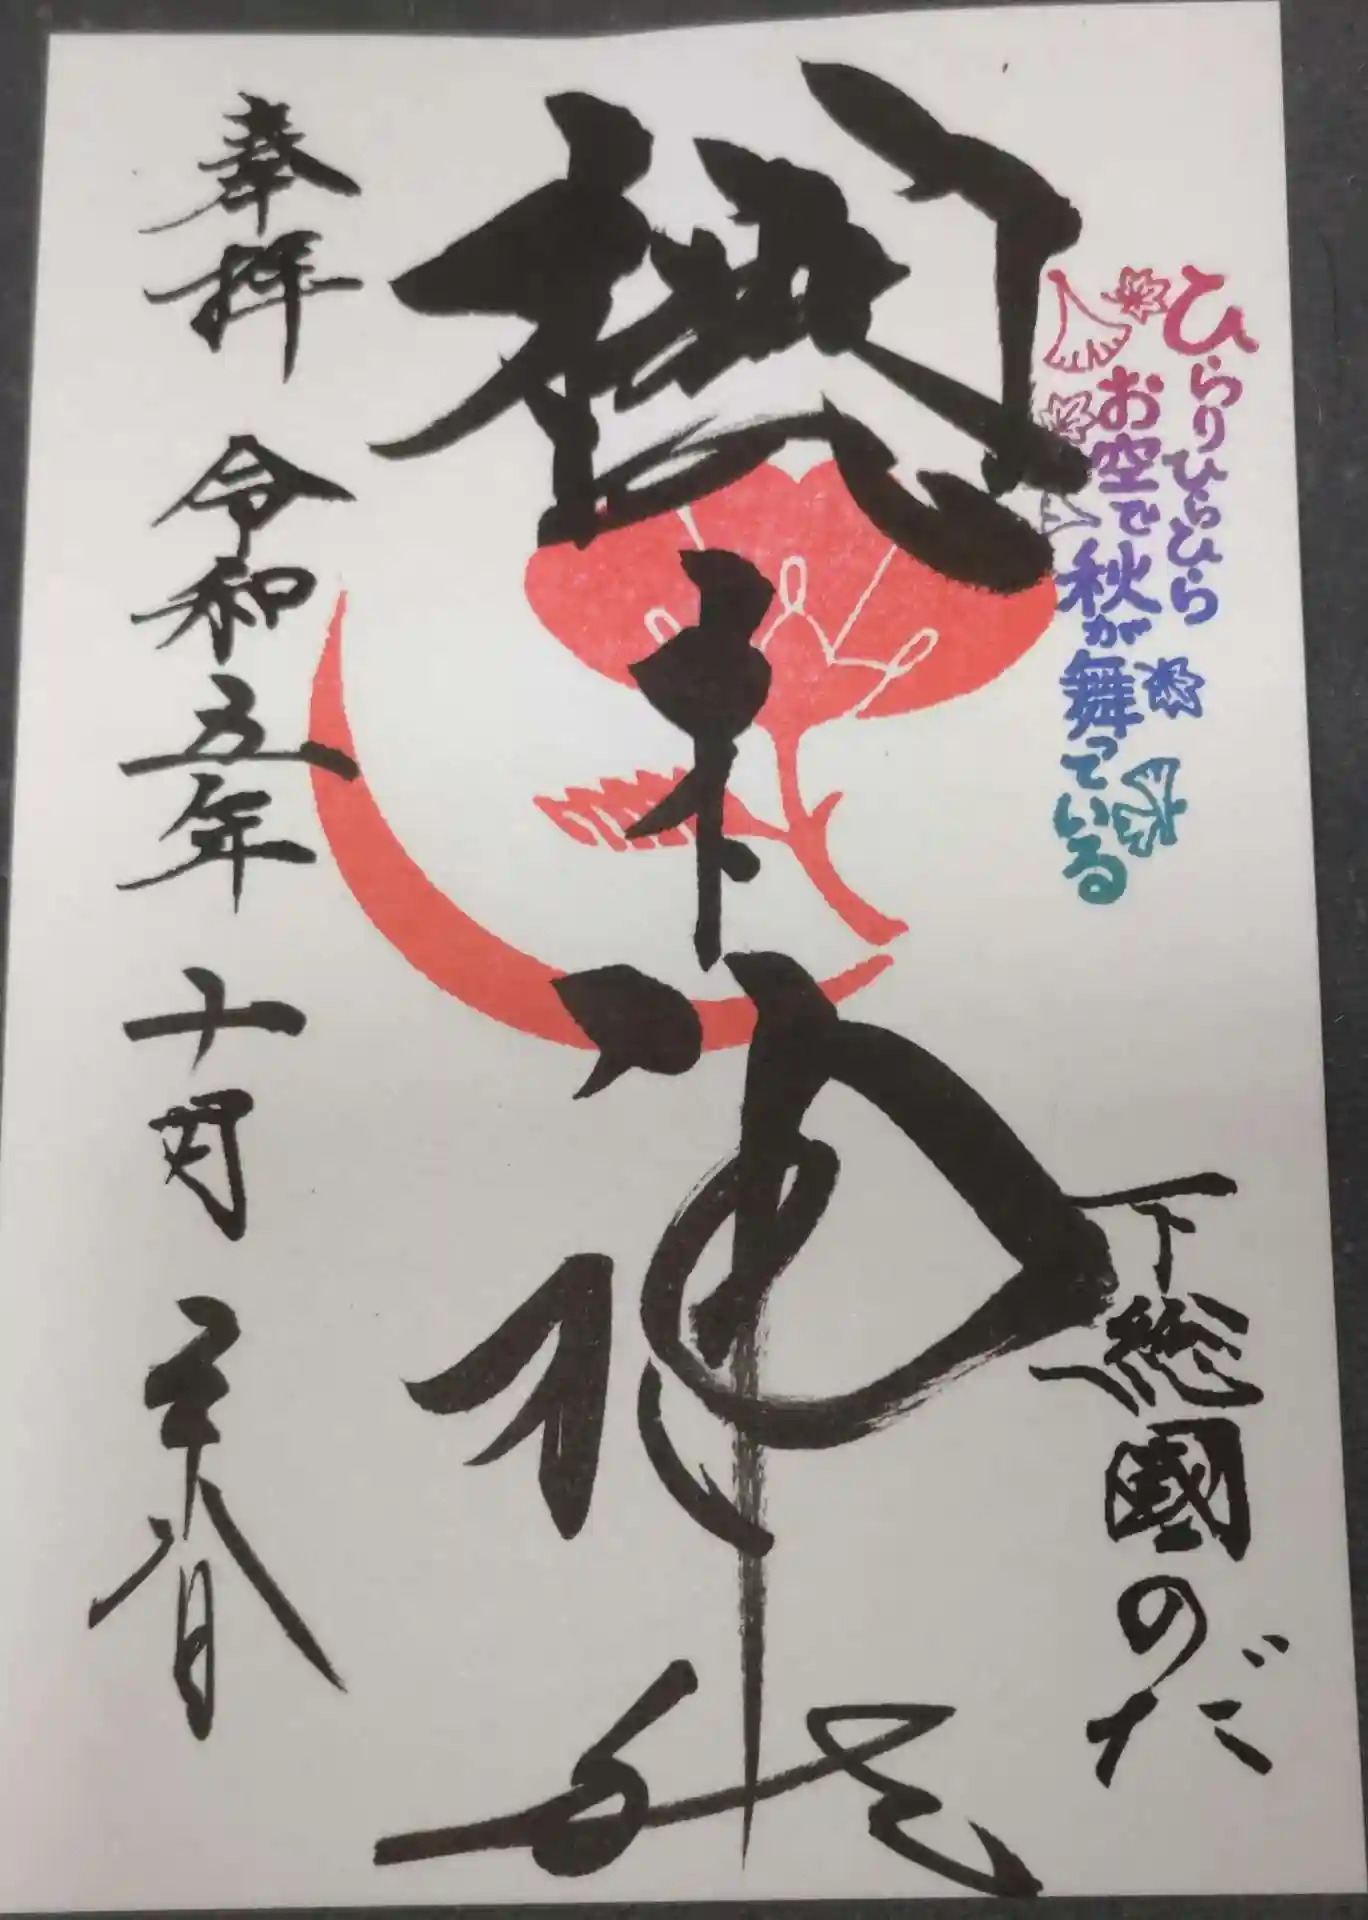 ひらりひらひら
お空で秋が舞っている
下総國のだ
櫻木神社
奉拝 令和五年十月二十八日